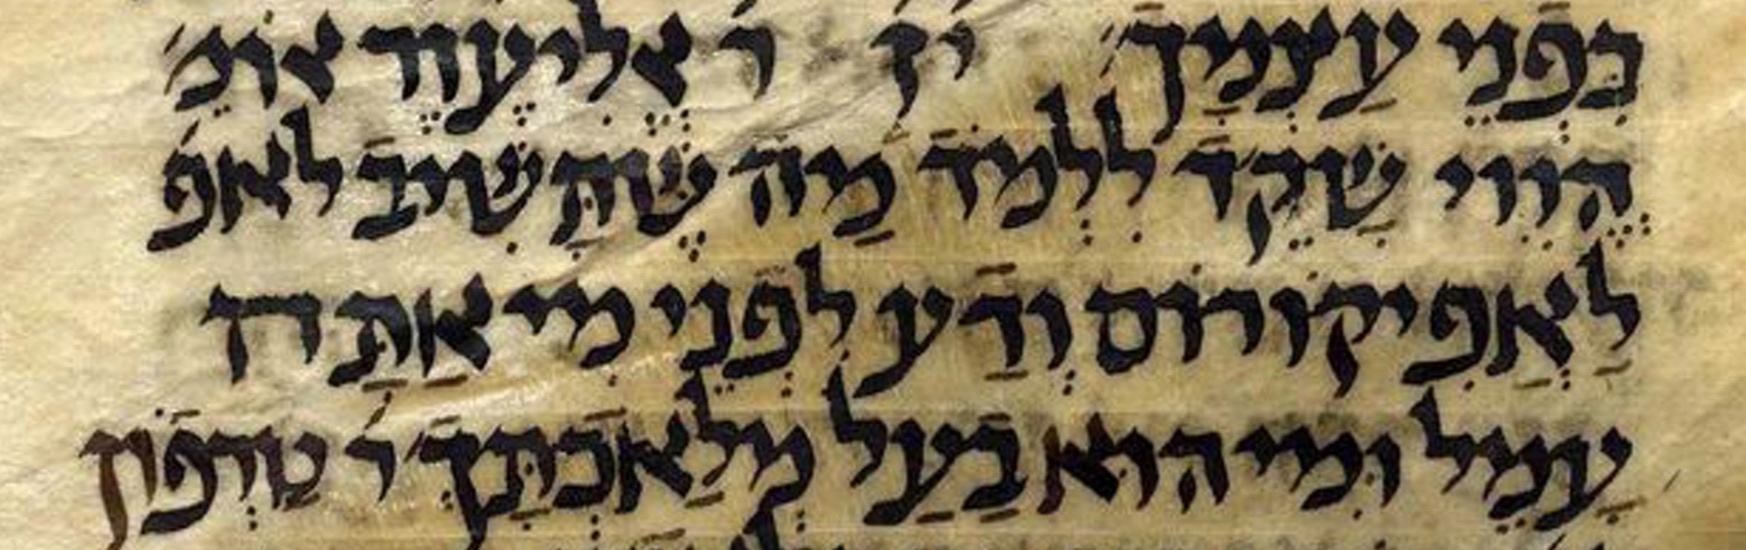 בִּפְנֵי עַצְמָךְ׳ יז ר׳ אֶלִיעֶזֶר אוֹמֵ׳
הֱוֵוי שָׁקֵד לִלְמֹד מַה שֶּׁתָּשִׁוב לאפ
לַאֲפִיקוֹרוֹס וְדַע לִפְנֵי מִי אַתָּה
עָמֵל וּמִי הוּא בַּעַל מְלַאכְתָּךְ׳ ר׳ טַרְפוֹן